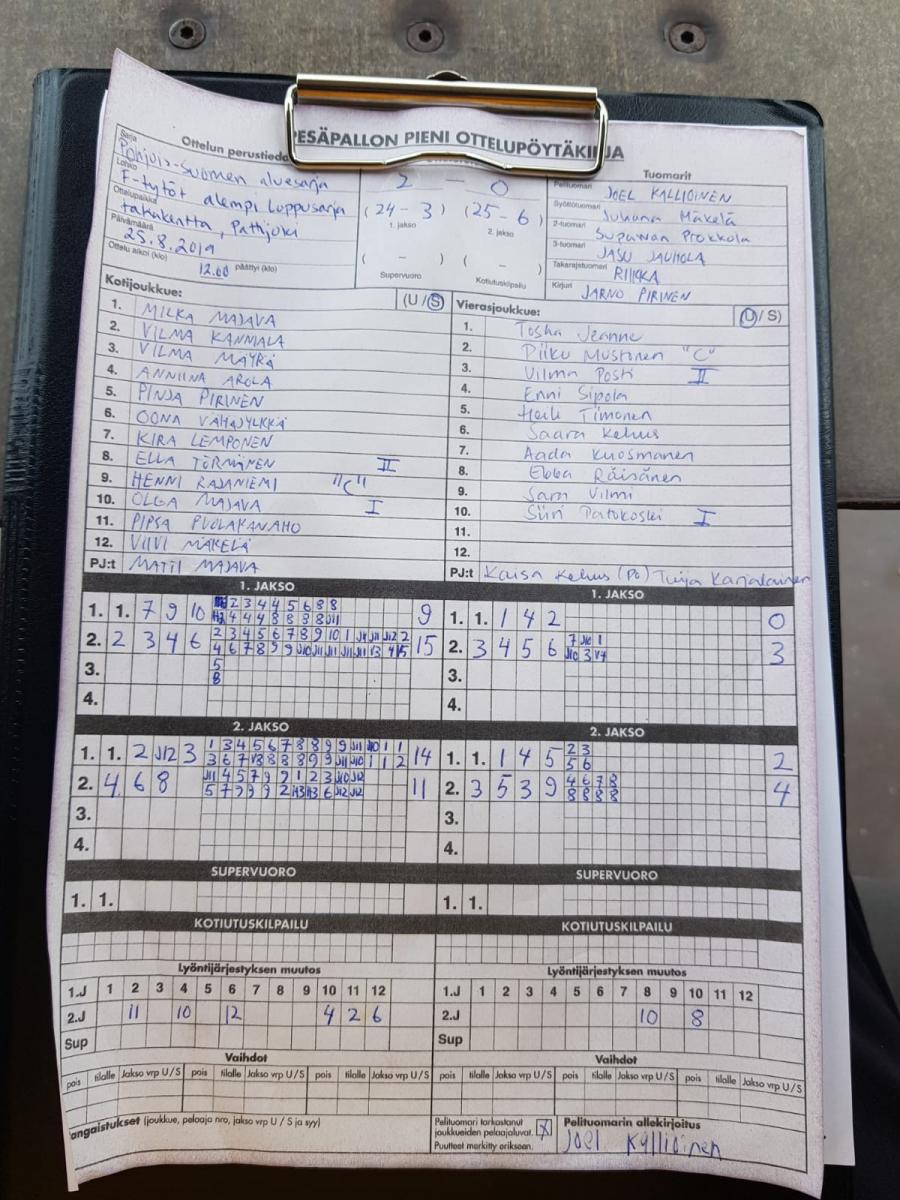 PESÄPALLON PIENI OTTELUPÖYTÄKIRJA
Ottelun perustiedo
Sarja
Pohjois-Suomen aluesarja
Lohko
F-tytöt alempi loppusarja
Ottelupaikka
takakenttä, Pattijoki
Päivämäärä
25.8.2019
Ottelu alkoi (klo) 12.00 päättyi (klo)
2 – 0
(24 - 3) (25 - 6)
1. jakso 2. jakso
( – ) ( – )
Supervuoro Kotiutuskilpailu
Tuomarit
Pelituomari JOEL KALLIOINEN
Syöttötuomari Juhana Mäkelä
2-tuomari Supawan Prokkola
3-tuomari JASU JAUHOLA
Takarajatuomari RIIKKA
Kirjuri JARNO PIRINEN
Kotijoukkue: (U / S)
1. MILKA MAJAVA
2. VILMA KANNIALA
3. VILMA MÄYRÄ
4. ANNIINA AROLA
5. PINJA PIRINEN
6. OONA VÄHÄJYLKKÄ
7. KIRA LEMPONEN
8. ELLA TÖRMÄNEN II
9. HENNI RAJANIEMI "C"
10. OLGA MAJAVA I
11. PIPSA PUOLAKANAHO
12. VIIVI MÄKELÄ
PJ:t MATTI MAJAVA
Vierasjoukkue: (U / S)
1. Tosha Jeanne
2. Piiku Mustonen "C"
3. Vilma Posti II
4. Enni Sipola
5. Heili Timonen
6. Saara Kehus
7. Aada Kuosmanen
8. Ebba Räisänen
9. Sara Vilmi
10. Siiri Patokoski I
11.
12.
PJ:t Kaisa Kehus (PJ) Tuija Karjalainen
1. JAKSO
1. 1. 7 9 10 2 3 4 4 5 6 8 8 9
4 4 4 8 8 8 8 J11
2. 2 3 4 6 2 3 4 5 6 7 8 9 10 1 J11 J11 J12 2 15
4 6 7 8 9 9 J10 J11 J11 J11 J11 13 4 15
3. 5
8
4.
1. JAKSO
1. 1. 1 4 2 0
2. 3 4 5 6 7 J10 1 3
J10 3 14
3.
4.
2. JAKSO
1. 1. 2 J12 3 1 3 4 5 6 7 8 8 9 9 J11 J10 1 1 14
3 6 7 13 8 8 8 9 9 J11 J10 1 1 2
2. 4 6 8 J11 4 5 7 9 9 1 2 3 J10 J12 11
5 7 9 9 9 2 H3 H3 6 J12 J12
3.
4.
2. JAKSO
1. 1. 1 4 5 2 3 2
5 6
2. 3 5 3 9 4 6 7 8 4
8 8 8 8
3.
4.
SUPERVUORO
1. 1.
SUPERVUORO
1. 1.
KOTIUTUSKILPAILU
KOTIUTUSKILPAILU
Lyöntijärjestyksen muutos
1.J 1 2 3 4 5 6 7 8 9 10 11 12
2.J 11 10 12 4 2 6
Sup
Lyöntijärjestyksen muutos
1.J 1 2 3 4 5 6 7 8 9 10 11 12
2.J 10 8
Sup
Vaihdot
pois tilalle Jakso vrp U/S pois tilalle Jakso vrp U/S pois tilalle Jakso vrp U/S
Vaihdot
pois tilalle Jakso vrp U/S pois tilalle Jakso vrp U/S pois tilalle Jakso vrp U/S
angaistukset (joukkue, pelaaja nro, jakso vrp U / S ja syy)
Pelituomari tarkastanut
joukkueiden pelaajaluvat. X
Puutteet merkitty erikseen.
Pelituomarin allekirjoitus
Joel Kyllioinen